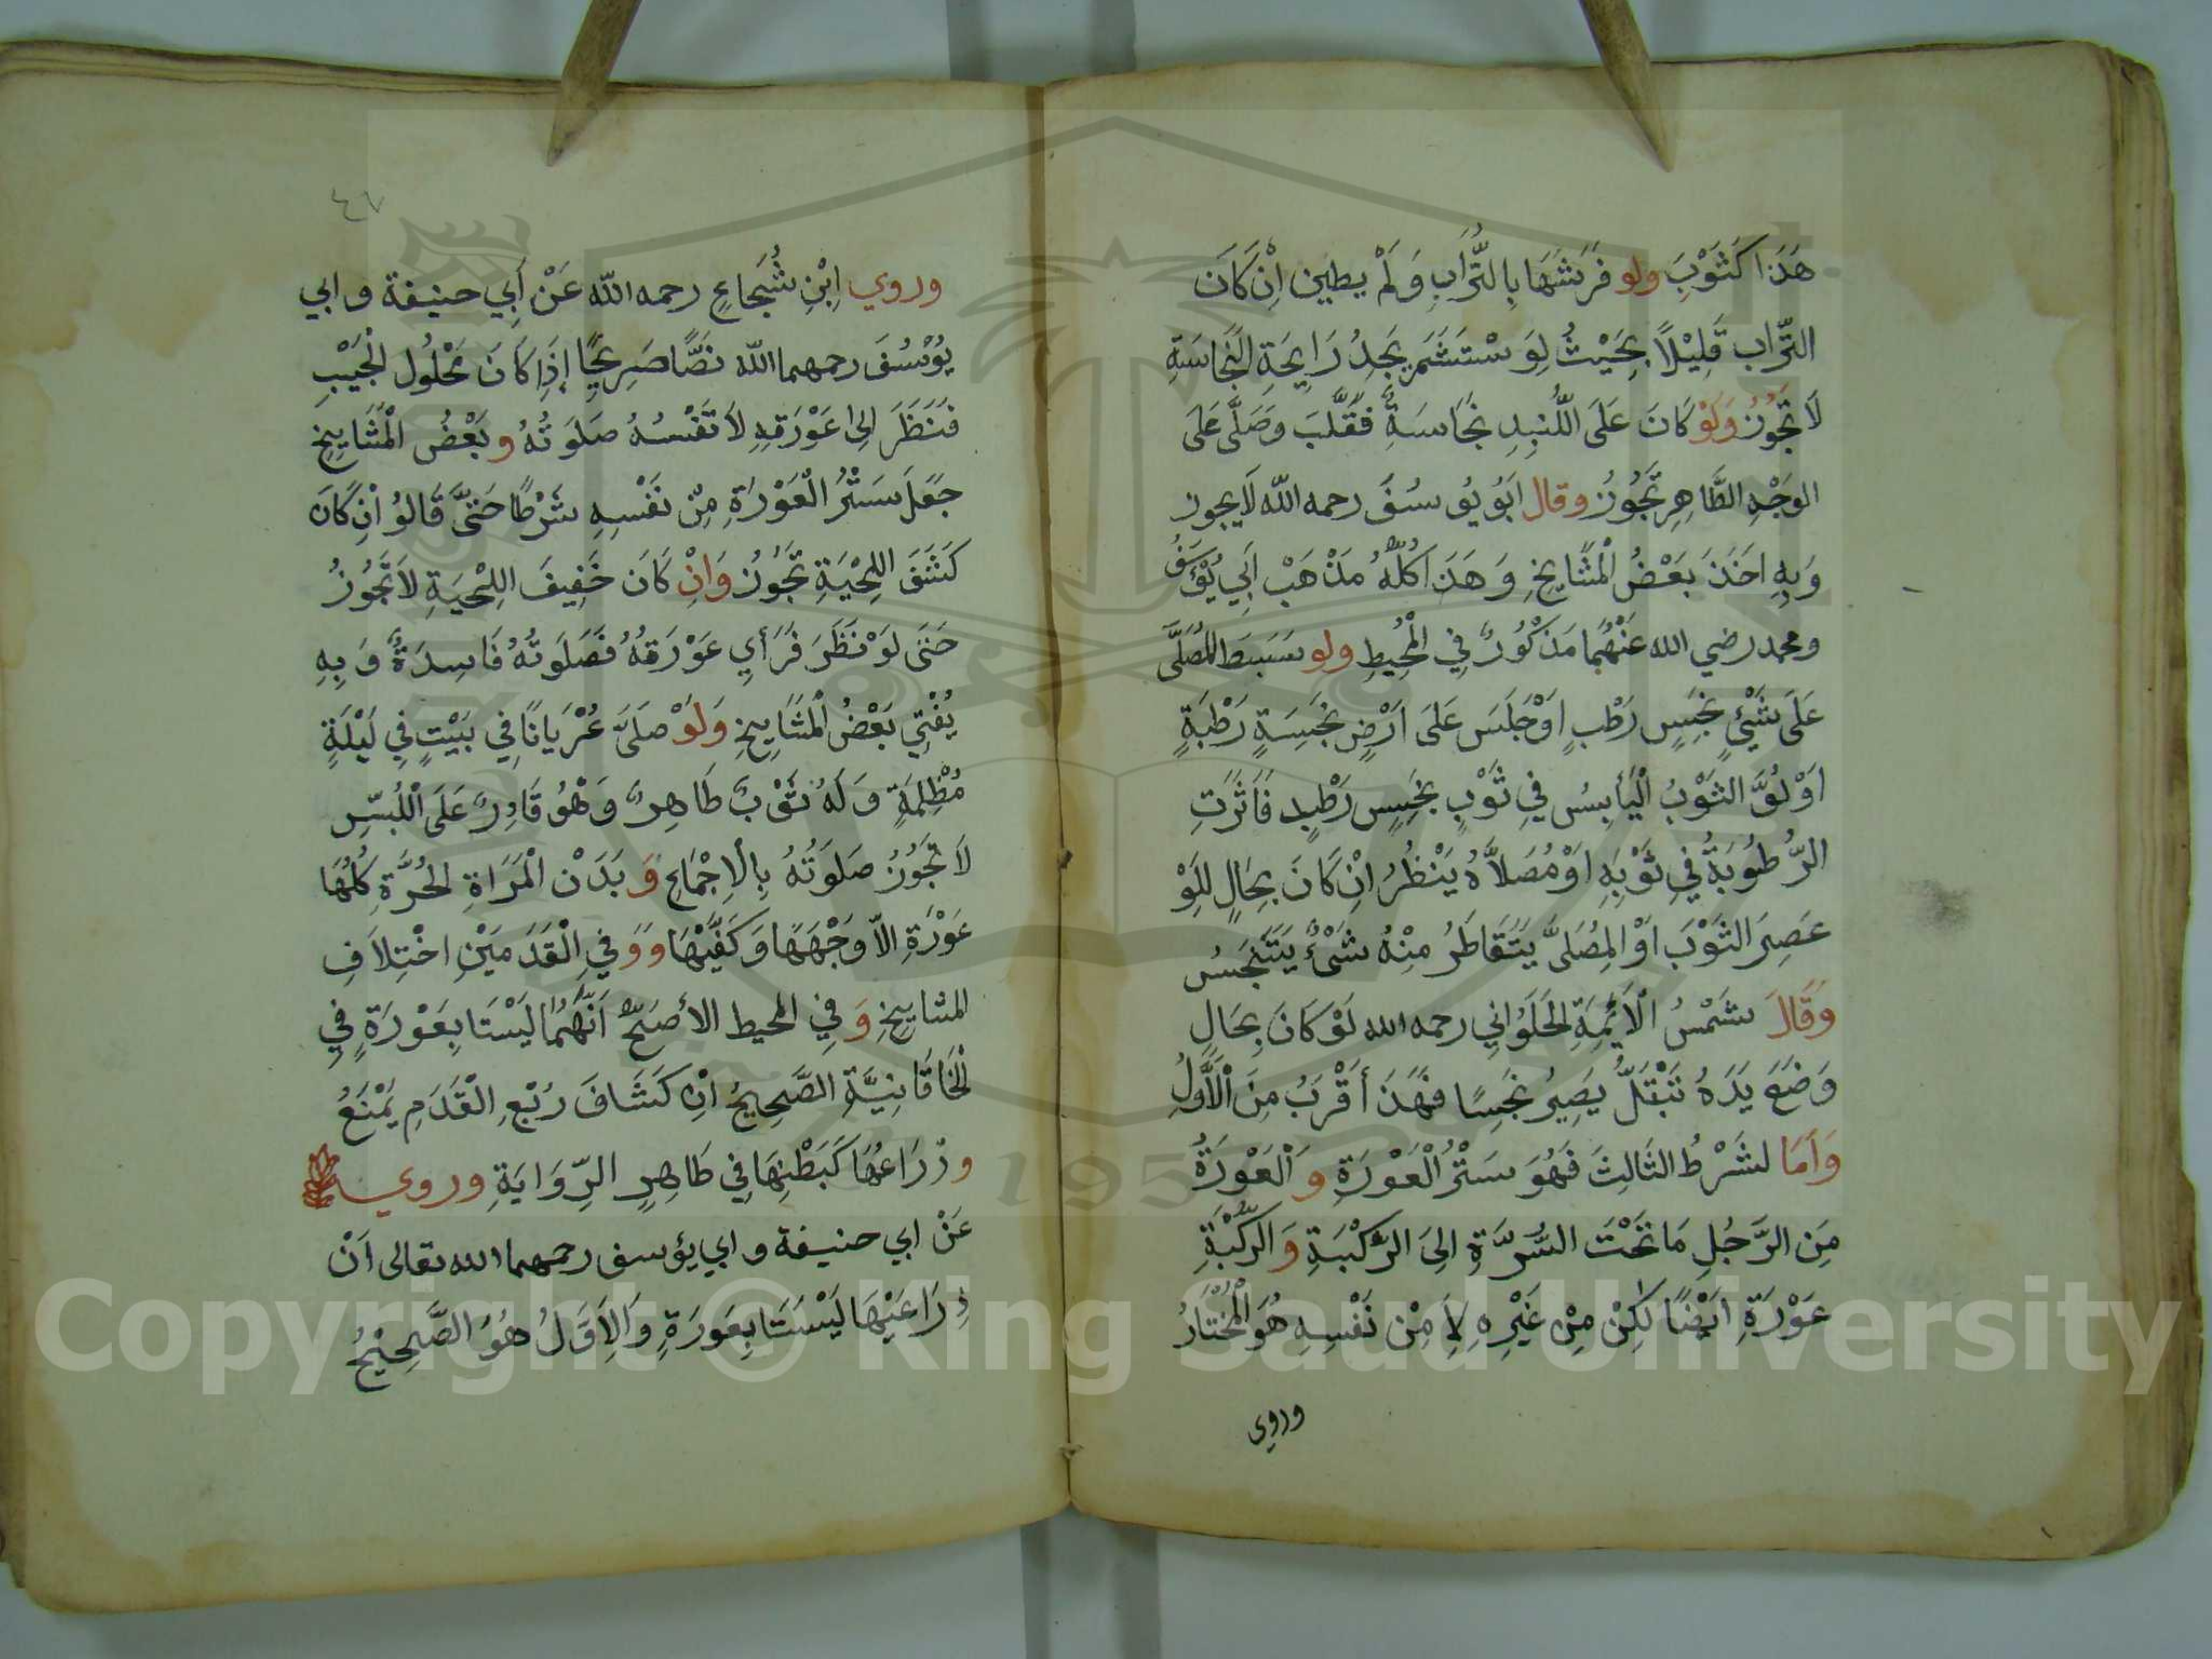 هَذَا كَثَوْبَ ولو فَرَشَهَا بِالتُّرَابِ وَلَمْ يطين اِنْ كَانَ
التّراب قَلِيْلاً بِحَيْثُ لِوَ سْتَشَمَ يَجِدُ رَايِحَةِ النَّجَاسَةِ
لَا تَجُوزُ وَلَوْ كَانَ عَلَى اللُّبَدِ نَجَاسَةٌ فَقَلَّبَ وَصَلَّى عَلَى
الوَجْهِ الطَّاهِرِ تَجُوزُ وقال اَبُو يُوسُفَ رحمه الله لَا يجوز
وَبِهِ اَخَذَ بَعْضُ الْمَشَايِخِ وَهَذَا كُلُّهُ مَذْهَبْ اَبِي يُوْسَفُ
ومحمد رضي الله عَنْهُمَا مَذْكُورٌ فِي الْمُحِيطِ ولو بسَطَ المُصَلَّى
عَلَى شَيْئٍ نَجِسٍ رَطْبٍ اَوْ جَلَسَ عَلَى اَرْضٍ نَجِسَةٍ رَطْبَةٍ
اَوْ لُفَّ الثَوْبُ الْيَابِسُ فِي ثَوْبٍ نَجِسٍ رَطْبٍ فَاَثَرَتِ
الرُّطُوبَةُ فِي ثَوْبِهِ اَوْ مُصَلاَّهُ يَنْظُرُ اِنْ كَانَ بِحَالٍ لِلَوْ
عَصِرَ الثَوْبَ اَوْ الْمُصَلىَّ يَتَقَاطَرُ مِنْهُ شَئٌ يَتَنَجَسُ
وَقَالَ شَمْسُ الْاَئِمَةِ الْحَلَوَانِي رحمه الله لَوْ كَانَ بِحَالِ
وَضَعَ يَدَهُ تَبْتَلُّ يَصِيرُ نَجِسًا فَهَذَ أَقْرَبُ مِنَ الْاَوَّلِ
وَاَمَا لشَرْطُ الثَالِثَ فَهُوَ سَتْرُ الْعَوْرَةِ وَ الْعَوْرَةُ
مِنَ الرَّجُلِ مَا تَحْتَ السُّرَّةِ اِلىَ الرُّكْبَةِ وَ الرُّكْبَةِ
عَوْرَةِ اَيْضًا لَكِنْ مِنْ غَيْرِهِ لاَ مِنْ نَفْسِهِ هُوَ الْمُخْتَارُ
وروى
٤٧
وروي اِبْنِ شُجَاعٍ رحمه الله عَنْ اَبِي حنيفة وابي
يُوْسُفَ رحمهما الله نَصًّا صَرِيحًا إِذَا كَانَ مَحْلُول الْجَيْبِ
فَنَظَرَ اِلى عَوْرَتِهِ لاَ تَفْسُدُ صَلَوَتُهُ وبَعْضُ الْمَشَايِخِ
جَعَلَ سَتْرُ الْعَوْرَةِ مِنْ نَفْسِهِ شَرْطًا حَتىَّ قَالُوُ اِنْ كَانَ
كَشَفَ اللِحْيَةِ تَجُوزُ وَاِنْ كَانَ خَفِيفَ اللِحْيَةِ لاَ تَجُوزُ
حَتَى لَوْ نَظَرَ فَرَأي عَوْرَتَهُ فَصَلَوَتُهُ فَاسِدَةٌ وَبِهِ
يُفْتِي بَعْضُ الْمَشَايِخِ وَلَوْ صَلَىَّ عُرْيَانًا فِي بَيْتٍ فِي لَيْلَةٍ
مُظْلِمَةٍ وَلَهُ ثَوْبٌ طَاهِرٌ وَهْوُ قَادِرٌ عَلَى اللُّبْسِ
لَا تَجُوزُ صَلَوَتُهُ بِالْاِجْمَاعِ وَ بَدَنْ الْمَرَاةِ الحُرَّةِ كُلُّهَا
عَوْرَةِ اِلاّ وَجْهَهَا وَكَفَّيْهَا وَوَفِي الْقَدَمَيْنِ اخْتِلاَفِ
المشايِخِ وَفِي المحيط الاَصَحُّ اَنَّهُمَا لَيْسَتَا بِعَوْرَةٍ فِي
الْخَاقَانِيَّةِ الصَّحِيحُ اِنْ كَشَافَ رُبْعِ الْقَدَمِ يَمْنَعُ
وذْرَاعُهَا كَبَطْنِهَا فِي ظَاهِرِ الرِّوَايَةِ وروي
عَنْ ابي حنيفة وابي يؤسف رحمهما الله تعالى اَنْ
ذِرَاعَيْهَا لَيْسَتَا بِعَورَةٍ وَالاَوَّلُ هُوُ الصَّحِيْحُ
Copyright © King Saud University
195